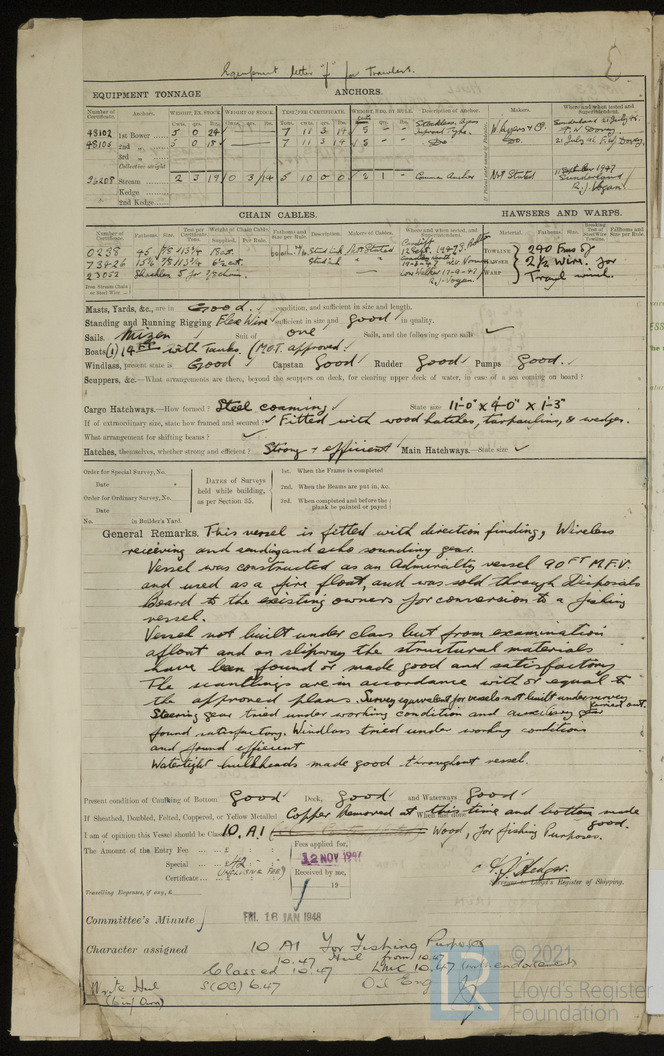 Equipment letter "f" for Trawlers.
EQUIPMENT TONNAGE
ANCHORS.
Number of Certificate. Anchors. WEIGHT, EX. STOCK. WEIGHT OF STOCK. TEST, PER CERTIFICATE. WEIGHT, REQ. BY RULE. Description of Anchor. Makers. Where and when tested and Superintendent.
48102 1st Bower 5 0 24 7 11 3 14 5 - - Stockless, Byers Improved Type. W. Byers & Co. Sunderland 21 July 45.
48105 2nd " 5 0 18 7 11 3 14 5 - - Do Do. 21 July 45
3rd "
Collective weight
36208 Stream 2 3 19 0 3 14 5 10 0 0 2 1 - Common Anchor Not Stated 1947 Sunderland
Kedge R.J. Vogan
2nd Kedge
CHAIN CABLES.
HAWSERS AND WARPS.
Number of Certificate. Fathoms. Size. Test per Certificate Tons. Weight of Chain Cable. Supplied. Per Rule. Fathoms and Size per Rule. Description Makers of Cables. Where and when tested, and Superintendent. Material. Fathoms. Size. Breaking Test of Steel Wire Towline Fathoms and Size per Rule.
0238 45 7/8 11 3/4 Stud link Not Stated Cardiff TOWLINE 240 Fms of
73426 15 1/2 7/8 11 3/4 Stud link " HAWSER 2 1/2 Wire. for
23052 Shackles 5 for 7/8 chain. 17-9-47 WARP Trawl winch.
R.J. Vogan.
Iron Stream Chain or Steel Wire
Masts, Yards, &c., are in Good. condition, and sufficient in size and length.
Standing and Running Rigging Flex Wire sufficient in size and good in quality.
Sails. Mizen Suit of one Sails, and the following spare sails
Boats (1) 14 Ft with Tanks. (M.O.T. approved.)
Windlass, present state is Good Capstan Good Rudder Good Pumps Good.
Scuppers, &c.—What arrangements are there, beyond the scuppers on deck, for clearing upper deck of water, in case of a sea coming on board?
Cargo Hatchways.—How formed? Steel coaming State size 11'-0" x 4'-0" x 1'-3"
If of extraordinary size, state how framed and secured? Fitted with wood hatches, tarpaulins, & wedges.
What arrangement for shifting beams?
Hatches, themselves, whether strong and efficient? Strong & efficient Main Hatchways.—State size
Order for Special Survey, No.
Date
Order for Ordinary Survey, No.
Date
No. in Builder's Yard.
DATES of Surveys held while building, as per Section 35.
1st. When the Frame is completed
2nd. When the Beams are put in, &c.
3rd. When completed and before the plank be painted or payed
General Remarks. This vessel is fitted with direction finding, Wireless
receiving and sending and echo sounding gear.
Vessel was constructed as an Admiralty vessel 90 FT M.F.V.
and used as a fire float, and was sold through Disposals
Board to the existing owners for conversion to a fishing
vessel.
Vessel not built under class but from examination
afloat and on slipway the structural materials
have been found or made good and satisfactory
The scantlings are in accordance with or equal to
the approved plans. Survey equivalent for vessels not built under survey carried out.
Steering gear tried under working condition and auxiliary gear
found satisfactory. Windlass tried under working conditions
and found efficient
Watertight bulkheads made good throughout vessel.
Present condition of Caulking of Bottom good Deck, good and Waterways good
If Sheathed, Doubled, Felted, Coppered, or Yellow Metalled Copper Removed at this time and bottom made good.
When last done
I am of opinion this Vessel should be Classed 10. A1 Wood, for fishing Purposes.
The Amount of the Entry Fee ... £
Special ... £42
(Inclusive Fee)
Certificate... £
Travelling Expenses, if any, £
Fees applied for,
12 NOV 1947
Received by me,
19
Hedger.
Surveyor to Lloyd's Register of Shipping.
Committee's Minute FRI. 16 JAN 1948
Character assigned 10 A1 For Fishing Purposes
10.47 Hul from 10.47
Classed 10.47 LMC 10.47 (with endorsements
S(OG) 6.47 Oil Eng
Write Hul
© 2021
Lloyd's Register
Foundation